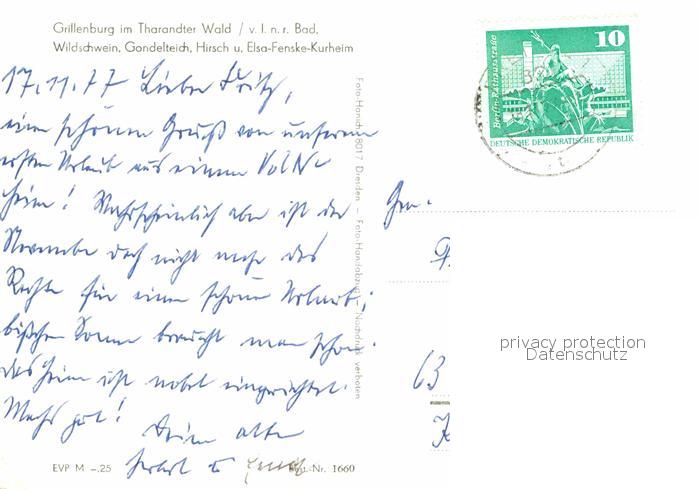 Grillenburg im Tharandter Wald / v. l. n. r. Bad,
Wildschwein, Gondelteich, Hirsch u. Elsa-Fenske-Kurheim
17.11.77 Lieber Fritz,
einen schönen Gruß von unserem
ersten Urlaub aus einem
heim! Wahrscheinlich aber ist der
November doch nicht mehr das
Rechte für einen schönen Urlaub;
bißchen Sonne braucht man schon.
das Heim ist nobel eingerichtet.
Machs gut!
Deine alten
Herbert u
EVP M –.25
Best.-Nr. 1660
Foto-Handabzug – Nachdruck verboten
8017 Dresden
10
Berlin-Rathausstraße
DEUTSCHE DEMOKRATISCHE REPUBLIK
63
privacy protection
Datenschutz